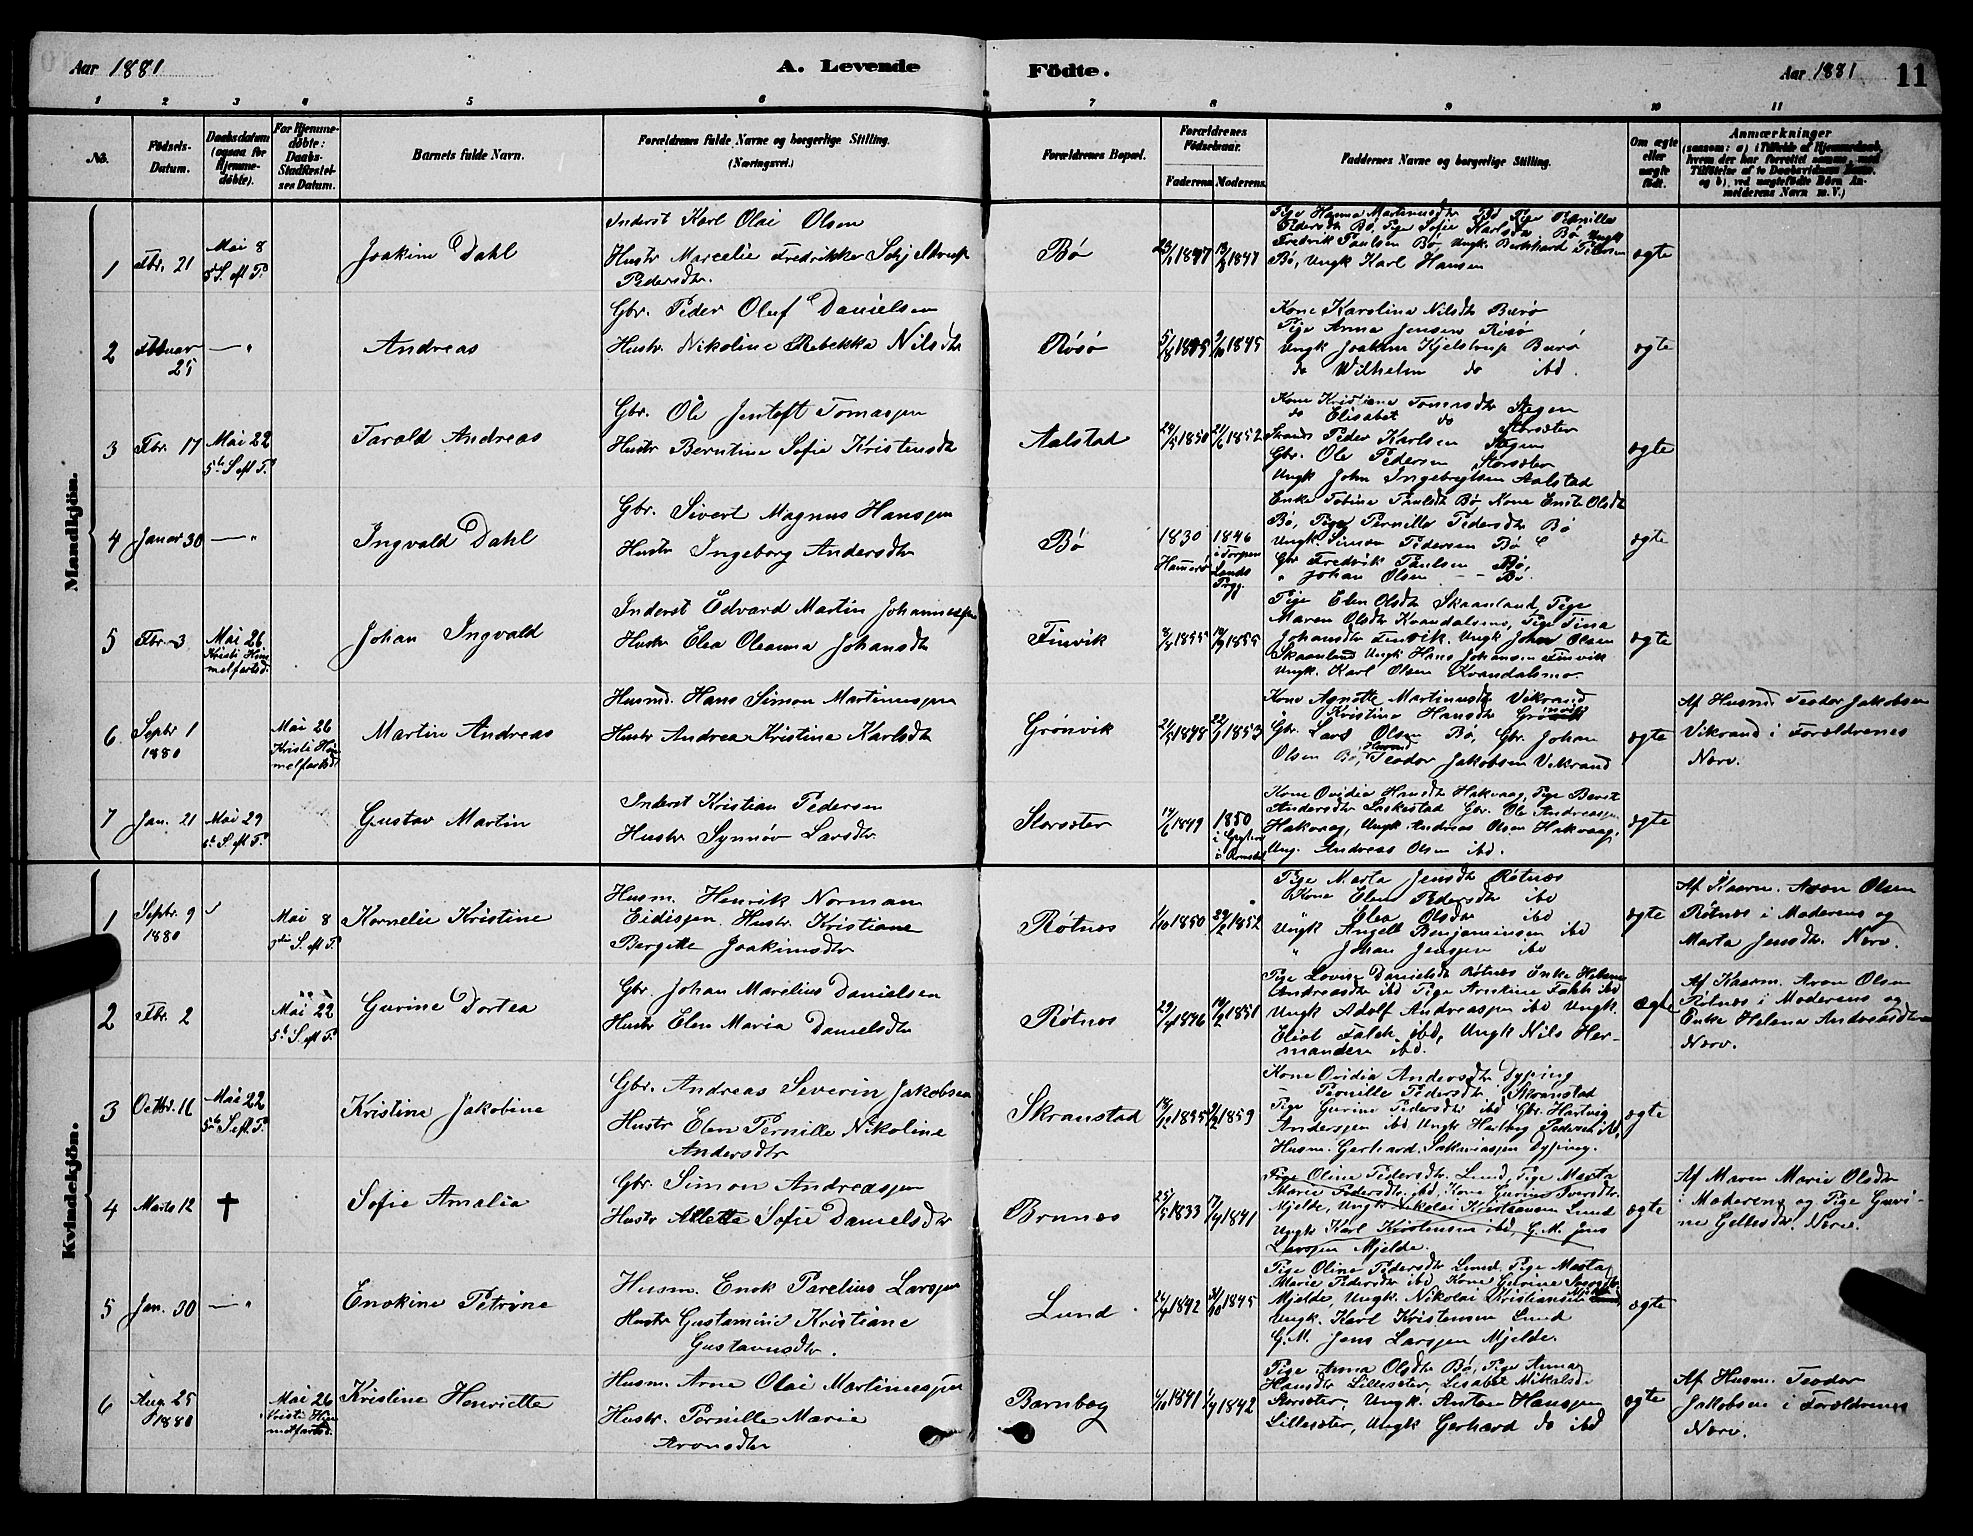 Aar 1881
A. Levende
Födte.
Aar 1881
11
1 2 3 4 5 6 7 8 9 10 11
No.
Födsels-Datum.
Daabsdatum (ogsaa for Hjemmedöbte).
For Hjemmedöbte: Daabs-Stadfæstelses Datum.
Barnets fulde Navn.
Forældrenes fulde Navne og borgerlige Stilling.
(Næringsvei.)
Forældrenes Bopæl.
Forældrenes Födselsaar.
Faderens. Moderens.
Faddernes Navne og borgerlige Stilling.
Om ægte eller uægte födt.
Anmærkninger
Mandkjön.
1 Fbr. 21 Mai 8 Joakim Dahl
Inderst Karl Olai Olsen
Hustr Marcelie Fredrikke Schjeldrup
Pedersdtr.
Bø
1847
Pige Hanna Martinusdtr Bø Pige Pernille
Pedersdtr Bø, Pige Sofie Karlsdtr Bø Ungk
Fredrik Paulsen Bø, Ungk. Bernhard Pedersen
Bø, Ungk Karl Hansen
ægte
2 Februar 25 —"— Andreas
Gbr. Peder Oluf Danielsen
Hustr Nikoline Rebekka Nilsdtr
Røsø
1845
Kone Karolina Nilsdtr Barø
Pige Anna Jensen Røsø
Ungk Joakim Kjelstrup Barø
do Wilhelm do ibd.
ægte
3 Fbr. 17 Mai 22 5te S. eft P. Tarald Andreas
Gbr. Ole Jentoft Tomassen
Hustr Berntine Sofie Kristensdtr
Aalstad
24/5 1850 21/6 1852
Kone Kristiane Tomasdtr Stegen
do Elisabet do Storsæter
Peder Karlsen Stegen
Gbr. Ole Pedersen Storsæter
Ungk John Ingebrigtsen Aalstad
ægte
4 Januar 30 —"— Ingvald Dahl
Gbr. Sivert Magnus Hanssen
Hustr Ingeborg Andersdtr
Bø
1830 Hamerø
1846 i Torpen Lands Prgj.
Enke Tobine Paulsdtr Bø, Kone Olsdtr
Bø, Pige Pernille Pedersdtr Bø
Ungk. Simon Pedersen Bø
Gbr Fredrik Paulsen Bø,
" Johan Olsen — Bø
ægte
5 Fbr. 3 Mai 26 Kristi Himmelfartsd. Johan Ingvald
Inderst Edvard Martin Johannessen
Hustr Elea Oleanna Johansdtr
Finvik
1855 1855
Pige Elen Olsdtr Skaanland, Pige
Maren Olsdtr Kvandalsmo, Pige Tina
Johansdtr Finvik. Ungk Johan Olsen
Skaanland Ungk Hans Johansen Finvik
Ungk. Karl Olsen Kvandalsmo.
ægte
6 Septbr 1 1880 Mai 26 Kristi Himmelfartsd Martin Andreas
Husmd. Hans Simon Martinussen
Hustr Andrea Kristine Karlsdtr
Grønvik
1848 22/1 1853
Kone Agnitte Martinusdtr Vikrand
Kristine Hansdtr
Gbr. Lars Olsen Bø, Gbr. Johan
Olsen Bø, Husmd Teodor Jakobsen Vikrand
ægte
Af Husmd Teodor Jakobsen
Vikrand i Forældrenes
Nærv.
7 Jan. 21 Mai 29 6te S. eft P. Gustav Martin
Inderst Kristian Pedersen
Hustr Synnøv Larsdtr
Storsæter
1849 1850
Kone Ovidia Hansdtr Hakvaag, Pige Berit
Andersdtr Laskestad Gbr. Ole Andreassen
Hakvaag, Ungk Andreas Olsen Hakvaag,
Ung. Andreas Olsen ibd.
ægte
Kvindekjön.
1 Septbr. 9 1880 Mai 8 Kornelie Kristine
Husm. Henrik Norman
Eidissen, Hustr. Kristiane
Bergitte Joakimsdtr
Røtnes
1/10 1850 1852
Pige Marta Jensdtr Røtnæs
Kone Elen Pedersdtr ibd
" Elea Olsdtr ibd
Ungk Angell Benjaminsen ibd
" Johan Jenssen ibd
ægte
Af Kaarm. Aron Olsen
Røtnæs i Moderens og
Marta Jensdtr. Nærv.
2 Fbr. 2 Mai 22 5te S. eft P. Gurine Dortea
Gbr. Johan Marelius Danielsen
Hustr Elen Maria Danielsdtr
Røtnes
1851
Pige Lovise Danielsdtr Røtnæs Enke Helene
Andreasdtr ibd Pige Arnkine Falch ibd
Ungk Adolf Andreassen ibd Ungk.
Eliot Falch ibd, Ungk Nils Hermandsen
ibd.
Ægte
Af Kaarm. Aron Olsen
Røtnæs i Moderens og
Enke Helene Andreasdtrs
Nærv.
3 Octbr. 16 Mai 22 5te S. eft P. Kristine Jakobine
Gbr. Andreas Severin Jakobsen
Hustr Elen Pernille Nikoline
Andersdtr
Skranstad
1859
Kone Ovidia Andersdtr Dyping
— Pernille Pedersdtr Skranstad
Pige Gurine Pedersdtr ibd Gbr. Hartvig
Anderssen ibd Ungk Hartvig Pedersen ibd,
Husm. Gerhard Sakariassen Dyping.
ægte
4 Marts 12 † Sofie Amalia
Gbr. Simon Andreassen
Hustr Allette Sofie Danielsdtr
Brunæs
25/5 1833 1841
Pige Oline Pedersdtr Lund, Pige Marta
Marie Pedersdtr ibd, Kone Gurine Sversdtr
Mjelde, Ungk Nikolai Kristiansen Lund
Ungk Karl Kristensen ibd, G.M. Jens
Larssen Mjelde.
ægte
Af Maren Marie Olsdtr
i Moderens og Pige Gurine
Gellesdtr. Nærv.
5 Jan. 30 —"— Enokine Petrine
Husm. Enok Parelius Larssen
Hustr Gustamine Kristiane
Gustavusdtr.
Lund
1842 31/10 1845
Pige Oline Pedersdtr Lund, Pige Marta
Marie Pedersdtr ibd Kone Gurine
Mjelde, Ungk. Nikolai Kristiansen
Ungk. Karl Kristensen Lund
G.M. Jens Larssen Mjelde.
ægte
6 Aug 25 1880 Mai 26 Kristi Himmelfartsd. Kristine Henriette
Husm. Arne Olai Martinussen
Hustr. Pernille Marie
Aronsdtr
Barnbog
1841 1842
Pige Anna Olsdtr Bø, Pige Anna
Hansdtr Lillesæter, Lisabet Mikalsd.
Storsæter, Ungk. Anton Hanssen
Lillesæter, Ungk Gerhard do ibd
ægte
Af Husm. Teodor
Jakobsen i Forældrenes
Nærv.